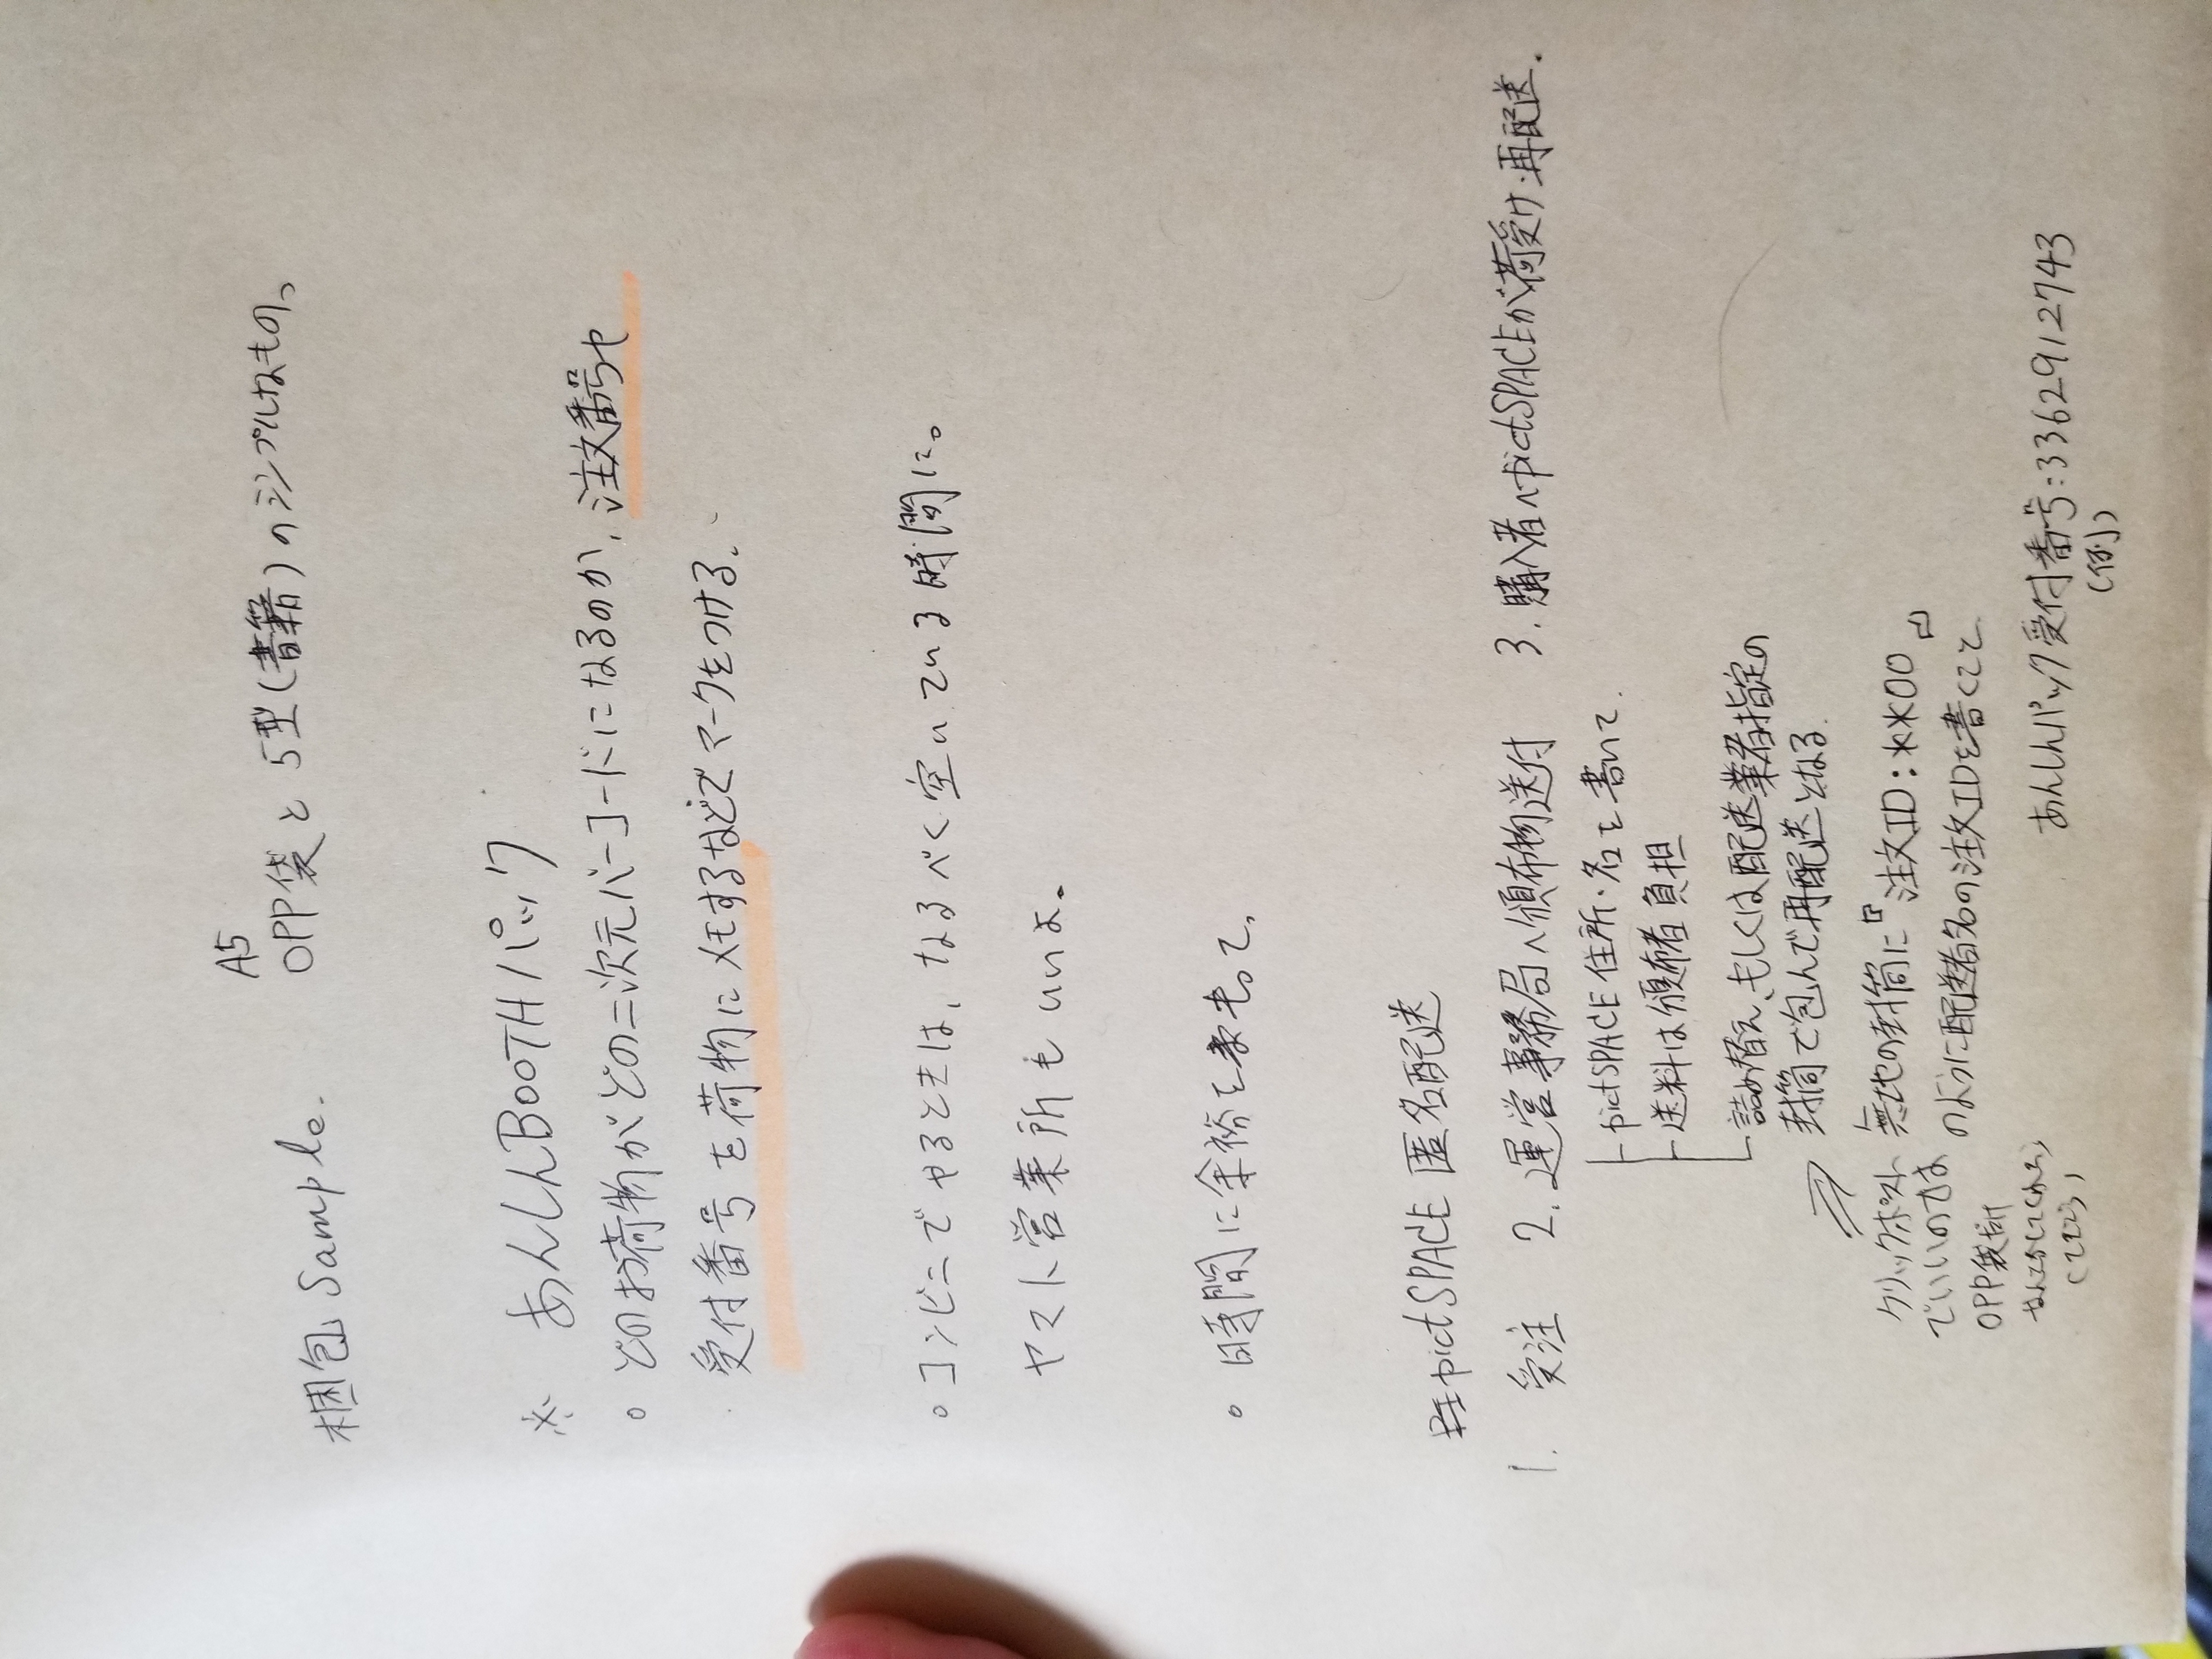 A5
梱包 Sample.
OPP袋と 5型(書籍)のシンプルなもの。
※ あんしんBOOTHパック
○ どのお荷物がどの二次元バーコードになるのか、注文番号や
受付番号を荷物にメモするなどでマークをつける。
○コンビニでやるときは、なるべく空いている時間に。
ヤマト営業所もいいよ。
○ 時間に余裕をもって。
pictSPACE 匿名配送
1. 受注 2. 運営事務局へ頒布物送付 3. 購入者へpictSPACEが荷受け・再配送.
pictSPACE 住所・名を書いて.
送料は頒布者負担
詰め替え、もしくは配送業者指定の
封筒で包んで再配送となる.
無地の封筒に『注文ID:**00』
のように配送者名の注文IDを書くこと
クリックポスト
でいいのかな
OPP袋だけ
あんしんパック受付番号:3362912743
(例)